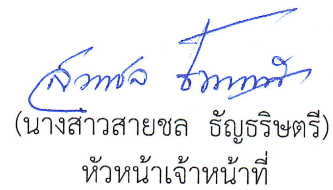 (นางสาวสายชล ธัญธริษตรี)
หัวหน้าเจ้าหน้าที่